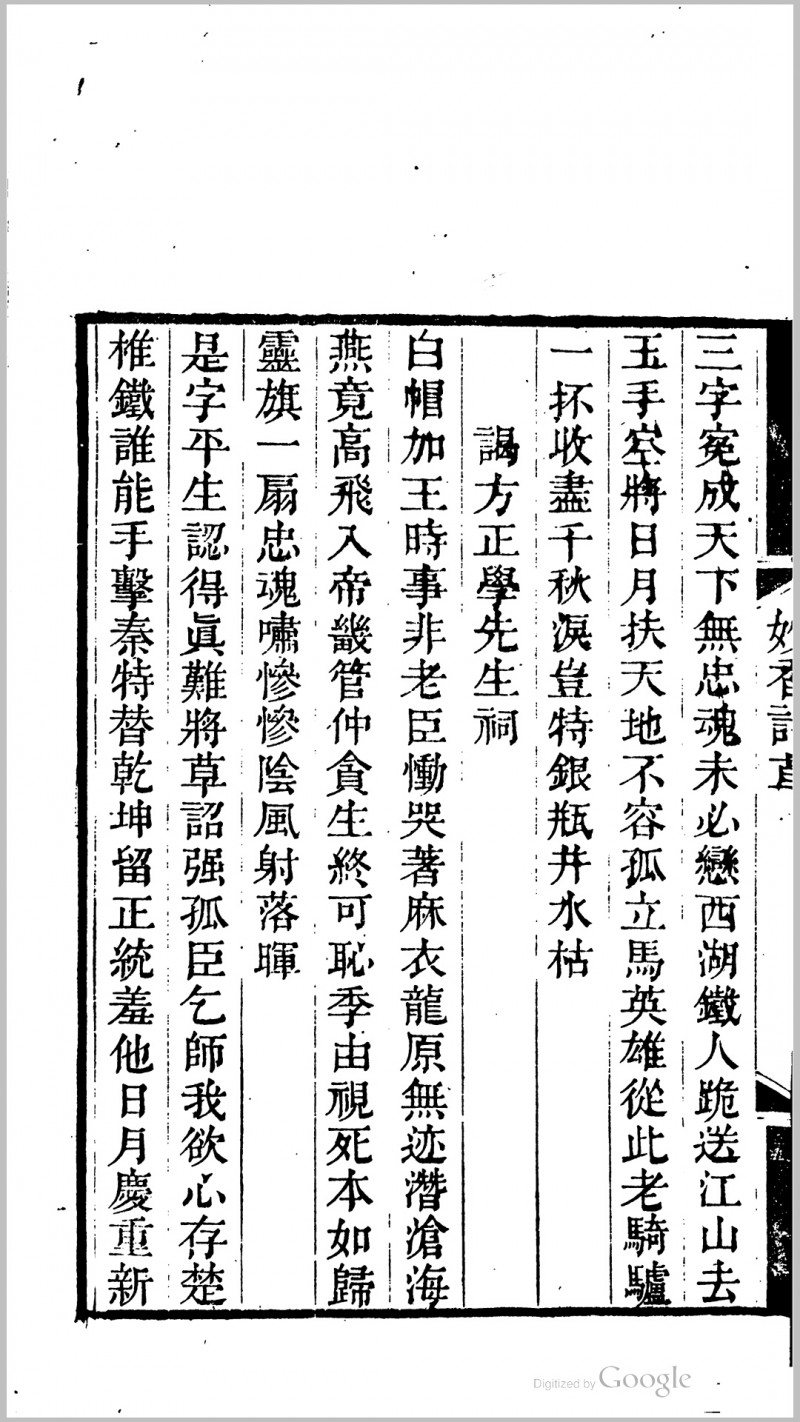 三字冤成天下無忠魂未必戀西湖鐵人跪送江山去
玉手空將日月扶天地不容孤立馬英雄從此老騎驢
一抔收盡千秋淚豈特銀瓶井水枯
謁方正學先生祠
白帽加王時事非老臣慟哭著麻衣龍原無迹潛滄海
燕竟高飛入帝畿管仲貪生終可恥季由視死本如歸
靈旗一扇忠魂嘯慘慘陰風射落暉
是字平生認得眞難將草詔强孤臣乞師我欲心存楚
椎鐵誰能手擊秦特替乾坤留正統羞他日月慶重新
妙香詩草
Digitized by Google